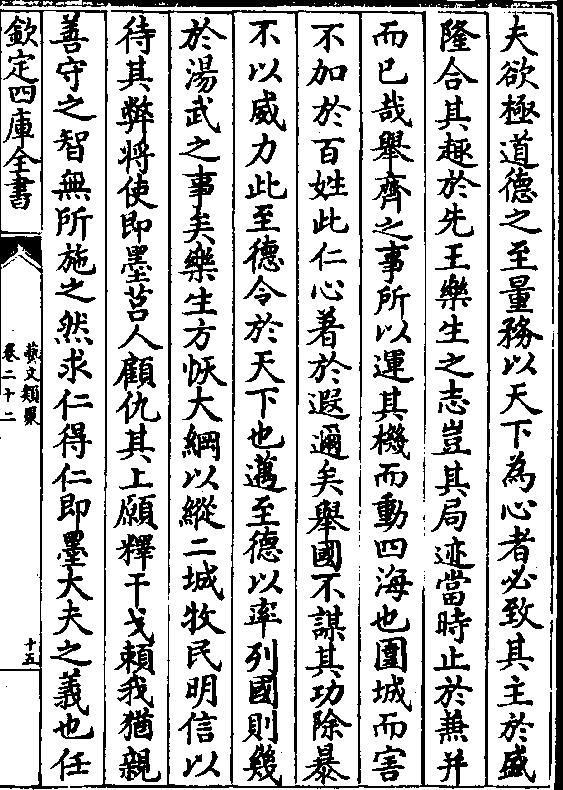 夫欲極道德之至量務以天下為心者必致其主於盛
隆合其趣於先王樂生之志豈其局迹當時止於兼并
而已哉舉齊之事所以運其機而動四海也圍城而害
不加於百姓此仁心著於遐邇矣舉國不謀其功除暴
不以威力此至德令於天下也邁至德以率列國則幾
於湯武之事矣樂生方恢大綱以縱二城牧民明信以
待其弊將使即墨莒人顧仇其上願釋干戈頼我猶親
善守之智無所施之然求仁得仁即墨大夫之義也任
欽定四庫全書
藝文類聚
卷二十二
十五